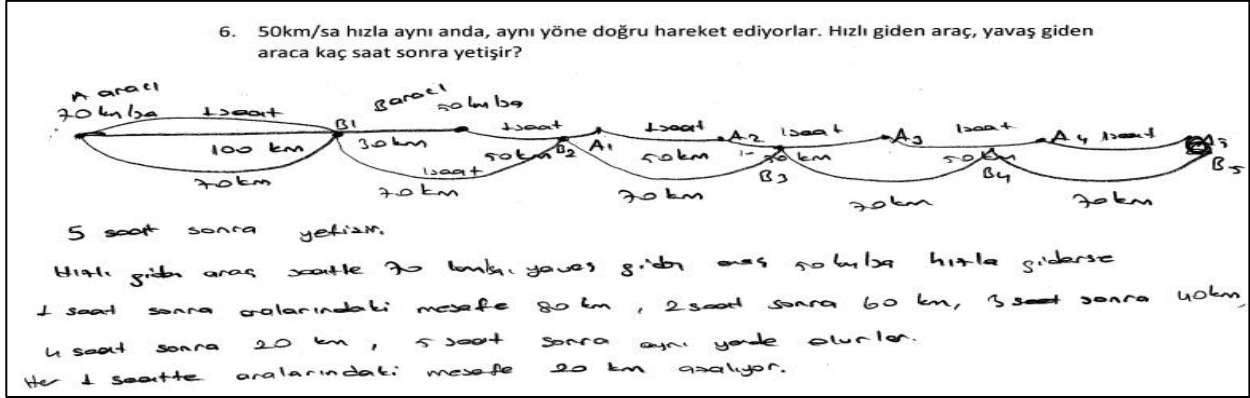 6. 50km/sa hızla aynı anda, aynı yöne doğru hareket ediyorlar. Hızlı giden araç, yavaş giden
araca kaç saat sonra yetişir?
A aracı
70 km/sa
1 saat
B aracı
50 km/sa
B1
100 km
30 km
70 km
1 saat
50 km
B2
A1
1 saat
70 km
1 saat
50 km
A2
70 km
1 saat
km
B3
A3
70 km
1 saat
50 km
B4
A4
1 saat
70 km
A5
B5
5 saat sonra yetişir.
Hızlı giden araç saatte 70 km/sa, yavaş giden araç 50 km/sa hızla giderse
1 saat sonra aralarındaki mesafe 80 km, 2 saat sonra 60 km, 3 saat sonra 40km,
4 saat sonra 20 km, 5 saat sonra aynı yerde olurlar.
Her 1 saatte aralarındaki mesafe 20 km azalıyor.